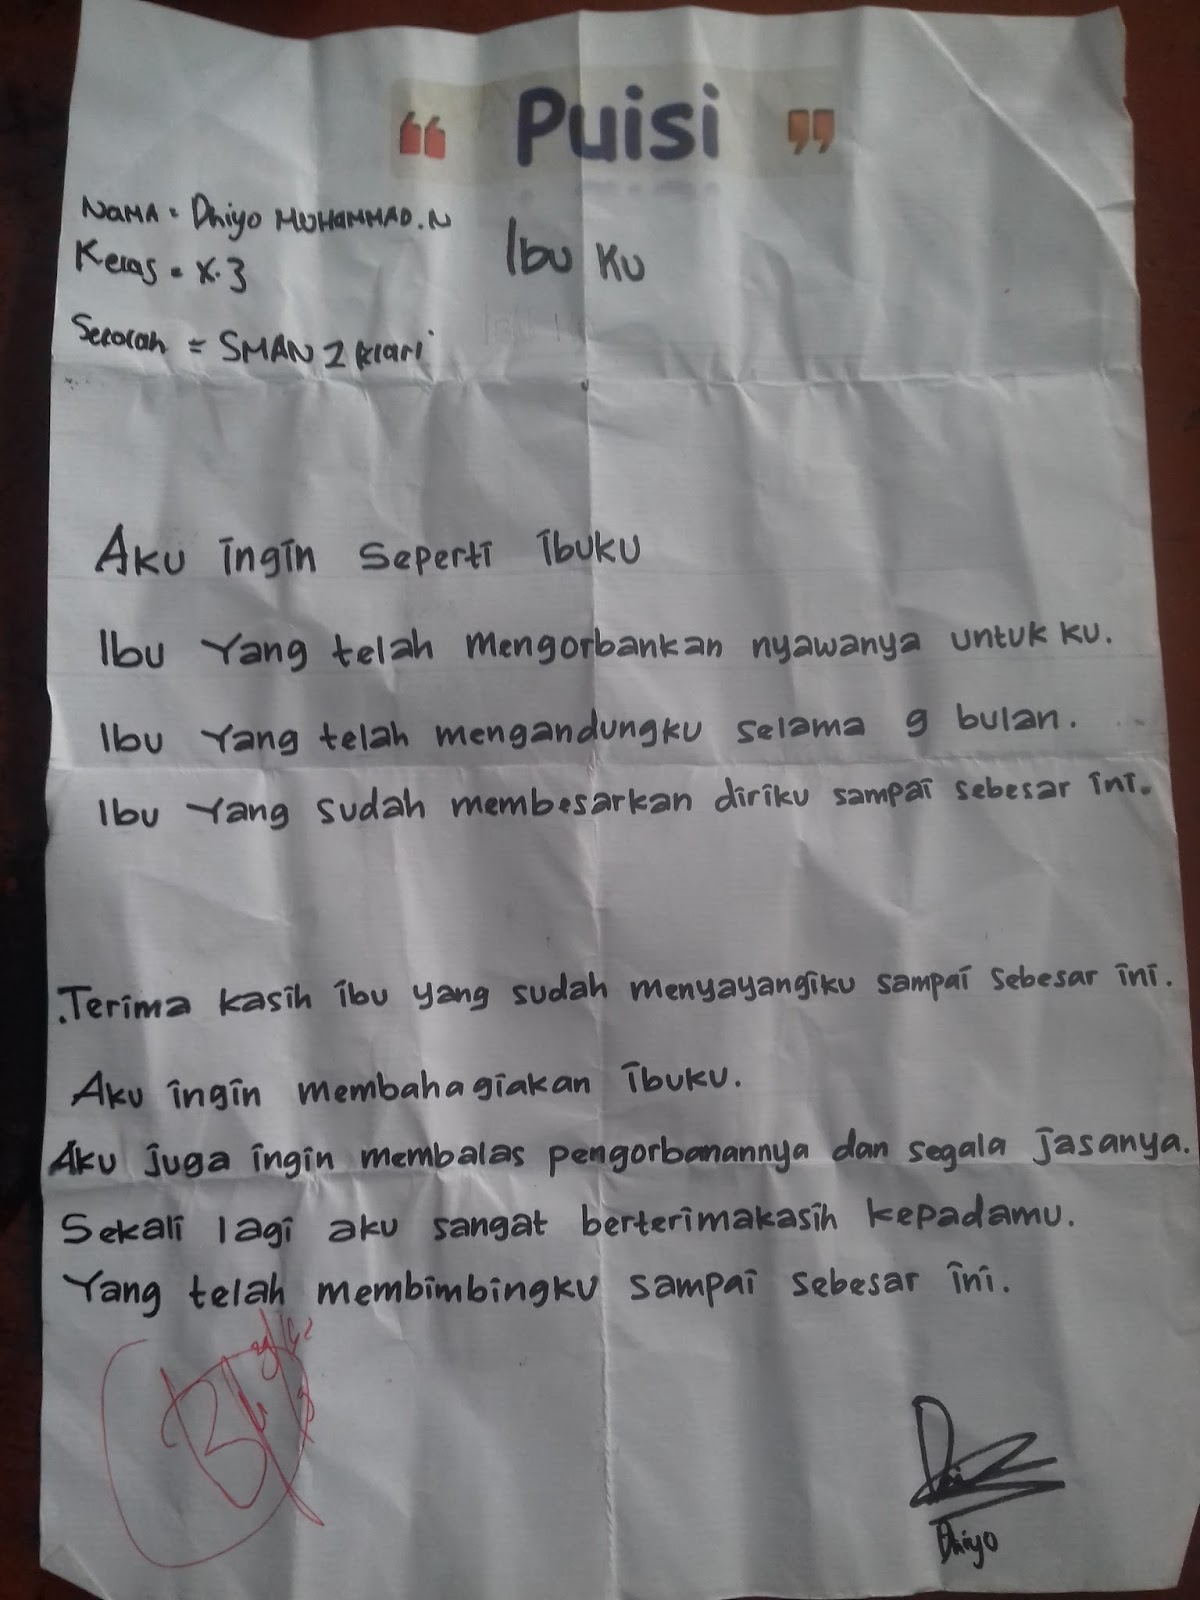 ❝ Puisi ❞
Nama = Dhiyo Muhammad.N
Ibu Ku
Kelas = X.3
Sekolah = SMAN 2 Klari
Aku ingin seperti ibuku
Ibu Yang telah mengorbankan nyawanya untuk ku.
Ibu Yang telah mengandungku selama 9 bulan.
Ibu Yang sudah membesarkan diriku sampai sebesar ini.
.Terima kasih ibu yang sudah menyayangiku sampai sebesar ini.
Aku ingin membahagiakan ibuku.
Aku juga ingin membalas pengorbanannya dan segala jasanya.
Sekali lagi aku sangat berterimakasih kepadamu.
Yang telah membimbingku sampai sebesar ini.
Dhiyo